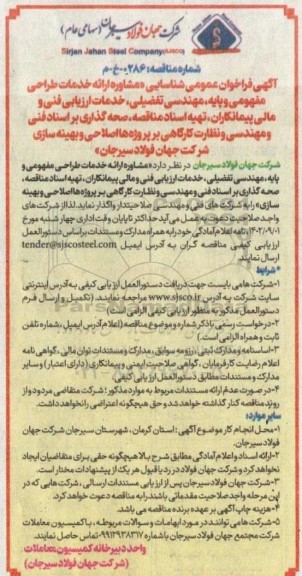 شرکت جهان فولاد سیرجان (سهامی عام)
Sirjan Jahan Steel Company (SJSCO)
شماره مناقصه: ۰۲۸۶-خ-م
آگهی فراخوان عمومی شناسایی «مشاوره ارائه خدمات طراحی
مفهومی و پایه، مهندسی تفضیلی، خدمات ارزیابی فنی و
مالی پیمانکاران، تهیه اسناد مناقصه، صحه گذاری بر اسناد فنی
و مهندسی و نظارت کارگاهی بر پروژه ها اصلاحی و بهینه سازی
شرکت جهان فولاد سیرجان»
شرکت جهان فولاد سیرجان در نظر دارد «مشاوره ارائه خدمات طراحی مفهومی و
پایه، مهندسی تفضیلی، خدمات ارزیابی فنی و مالی پیمانکاران، تهیه اسناد مناقصه،
صحه گذاری بر اسناد فنی و مهندسی و نظارت کارگاهی بر پروژه ها اصلاحی و بهینه
سازی» را به شرکت های فنی و مهندسی صلاحیتدار واگذار نماید. لذا از شرکت های
واجد صلاحیت دعوت به عمل می آید حداکثر تا پایان وقت اداری چهارشنبه مورخ
۱۴۰۲/۰۹/۰۱، نامه اعلام آمادگی خود را به همراه مدارک و مستندات بر اساس دستورالعمل
ارزیابی کیفی مناقصه گران به آدرس ایمیل tender@sjscosteel.com
ارسال نمایند.
* شرایط
۱-شرکت ها می بایست جهت دریافت دستورالعمل ارزیابی کیفی به آدرس اینترنتی
سایت شرکت به آدرس www.sjsco.ir مراجعه نمایند. (تکمیل و ارسال فرم
دستورالعمل مذکور به منظور ارزیابی کیفی الزامی است.)
۲-درخواست رسمی با ذکر شماره و موضوع مناقصه (اعلام آدرس ایمیل، شماره تلفن
ثابت و همراه الزامی است.)
۳-اساسنامه و مدارک ثبتی، رزومه، سوابق، مدارک و مستندات توان مالی، گواهی نامه
اعلام رضایت کارفرمایان، گواهی صلاحیت ایمنی و پیمانکاری (دارای اعتبار) و سایر
مدارک و مستندات مطابق دستورالعمل ارزیابی کیفی.
۴-در صورت عدم ارائه مستندات مربوط به موارد مذکور؛ شرکت متقاضی مردود و از
روند مناقصه کنار گذاشته خواهد شد و حق هیچگونه اعتراضی را نخواهد داشت.
سایر موارد:
۱-محل انجام کار موضوع آگهی: استان کرمان، شهرستان سیرجان شرکت جهان
فولاد سیرجان.
۲-ارائه اسناد و اعلام آمادگی مطابق شرح بالا هیچگونه حقی برای متقاضیان ایجاد
نخواهد کرد و شرکت جهان فولاد در رد یا قبول هر یک از پیشنهادات مختار است.
۳-شرکت جهان فولاد سیرجان پس از ارزیابی مستندات ارسالی، شرکت هایی که در
این مرحله واجد صلاحیت مقدماتی باشند را به مناقصه دعوت خواهد کرد.
۴-هزینه چاپ آگهی بر عهده برنده مناقصه می باشد.
۵-شرکت ها می توانند در مورد ابهامات و سوالات مربوطه، با کمیسیون معاملات
شرکت مجتمع جهان فولاد سیرجان با شماره ۰۹۹۱۲۹۳۸۳۱۷ تماس حاصل نمایند.
واحد دبیرخانه کمیسیون معاملات
(شرکت جهان فولاد سیرجان)